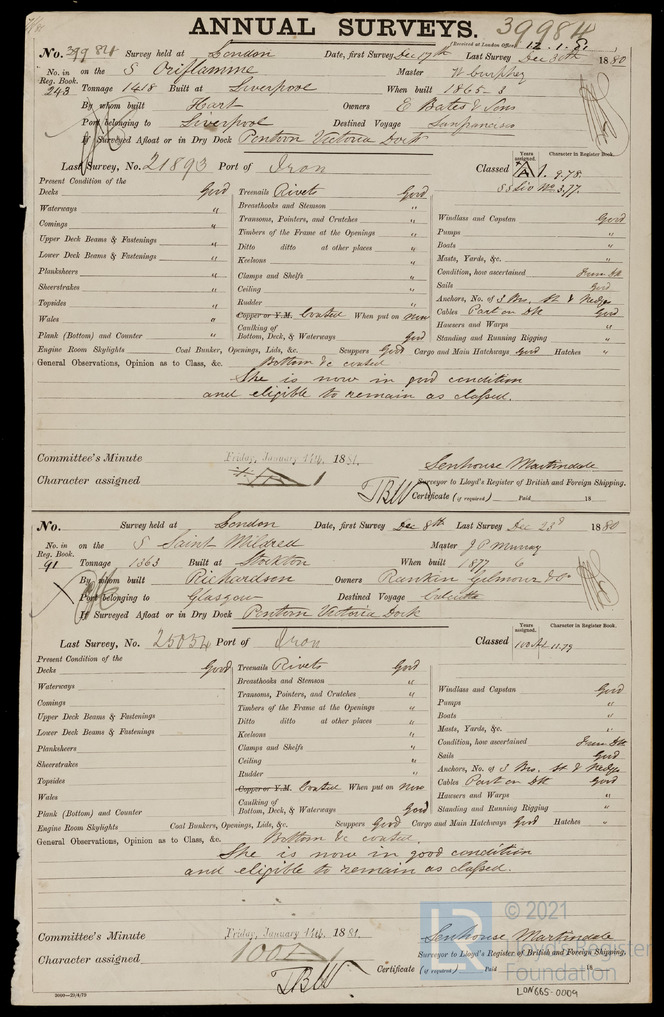 ANNUAL SURVEYS. 39984
(Received at London Office 12.1.81
No. 39984 Survey held at London Date, first Survey Dec 17th Last Survey Dec 30th 1880
No. in Reg. Book. 243 on the S Oriflamme Master W Murphey
Tonnage 1418 Built at Liverpool When built 1865 3
By whom built Hart Owners E Bates & Sons
Port belonging to Liverpool Destined Voyage Sanfrancisco
If Surveyed Afloat or in Dry Dock Pontoon Victoria Dock
Last Survey, No. 21893 Port of Iron Classed Years assigned. Character in Register Book.
A 1. 9.78
SS Liv No 3.77.
Present Condition of the
Decks Good Treenails Rivets Good
Waterways " Breasthooks and Stemson " Windlass and Capstan Good
Comings " Transoms, Pointers, and Crutches " Pumps "
Upper Deck Beams & Fastenings " Timbers of the Frame at the Openings " Boats "
Lower Deck Beams & Fastenings " Ditto ditto at other places " Masts, Yards, &c. "
Planksheers " Keelsons " Condition, how ascertained From Dk
Sheerstrakes " Clamps and Shelfs " Sails Good
Topsides " Ceiling " Anchors, No. of 3 Brs. St & Kedge
Wales " Rudder " Cables Part on Dk Good
Plank (Bottom) and Counter " Copper or Y.M. Coated When put on now Hawsers and Warps "
Caulking of Bottom, Deck, & Waterways Good Standing and Running Rigging "
Engine Room Skylights Coal Bunker, Openings, Lids, &c. Scuppers Good Cargo and Main Hatchways Good Hatches "
General Observations, Opinion as to Class, &c. Bottom &c coated
She is now in good condition
and eligible to remain as classed.
Committee's Minute Friday, January 14th, 1881.
Character assigned A 1
Senhouse Martindale
Surveyor to Lloyd's Register of British and Foreign Shipping.
TBW Certificate (if required) Paid 18
No. Survey held at London Date, first Survey Dec 8th Last Survey Dec 23d 1880
No. in Reg. Book. 91 on the S Saint Mildred Master J P Murray
Tonnage 1363 Built at Stockton When built 1877 6
By whom built Richardson Owners Rankin Gilmour & Co
Port belonging to Glasgow Destined Voyage Calcutta
If Surveyed Afloat or in Dry Dock Pontoon Victoria Dock
Last Survey, No. 25034 Port of Iron Classed Years assigned. Character in Register Book.
100 A1 11.79
Present Condition of the
Decks Good Treenails Rivets Good
Waterways Breasthooks and Stemson " Windlass and Capstan Good
Comings Transoms, Pointers, and Crutches " Pumps "
Upper Deck Beams & Fastenings Timbers of the Frame at the Openings " Boats "
Lower Deck Beams & Fastenings Ditto ditto at other places " Masts, Yards, &c. "
Planksheers Keelsons " Condition, how ascertained From Dk
Sheerstrakes Clamps and Shelfs " Sails Good
Topsides Ceiling " Anchors, No. of 3 Brs. St & Kedge
Wales Rudder " Cables Part on Dk Good
Plank (Bottom) and Counter Copper or Y.M. Coated When put on now Hawsers and Warps "
Caulking of Bottom, Deck, & Waterways Good Standing and Running Rigging "
Engine Room Skylights Coal Bunkers, Openings, Lids, &c. Scuppers Good Cargo and Main Hatchways Good Hatches "
General Observations, Opinion as to Class, &c. Bottom &c coated.
She is now in good condition
and eligible to remain as classed.
Committee's Minute Friday, January 14th, 1881.
Character assigned 100A1
Senhouse Martindale
Surveyor to Lloyd's Register of British and Foreign Shipping.
TBW Certificate (if required) Paid 18
© 2021
LR Lloyd's Register
Foundation
LON665-0009